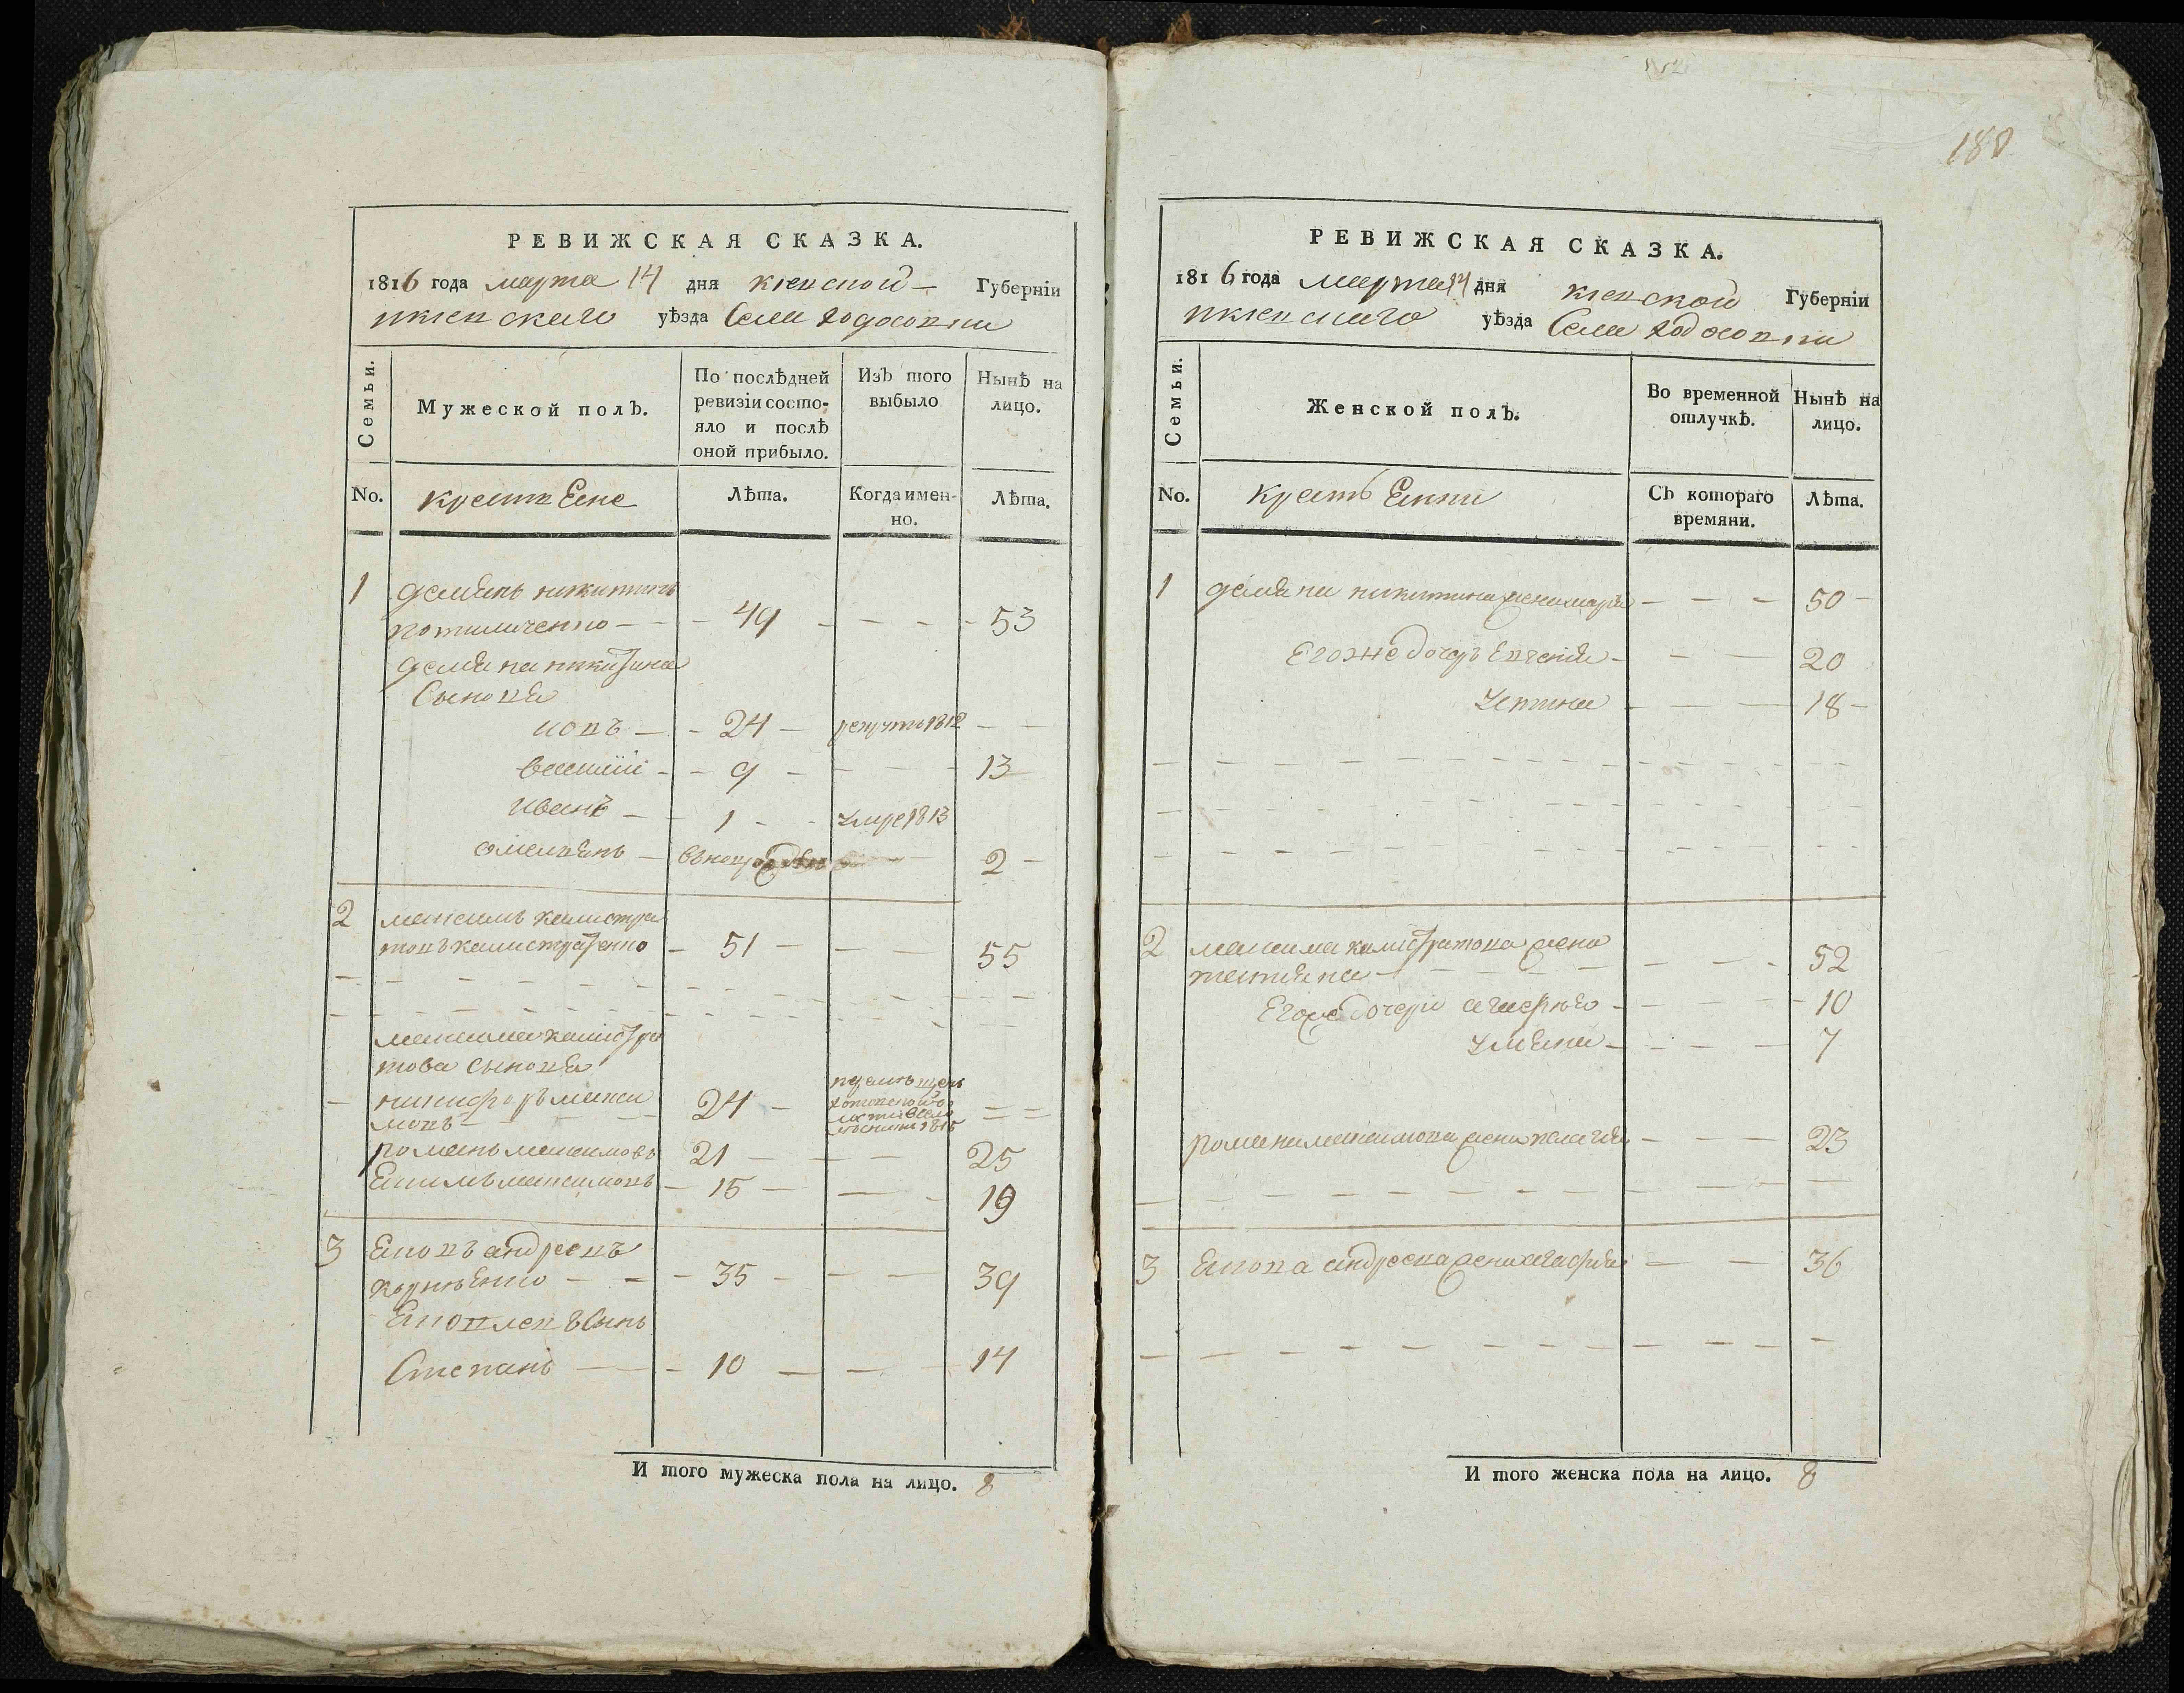 180
РЕВИЖСКАЯ СКАЗКА.
1816 года марта 14 дня киевской Губерніи
икиевскаго уѣзда Села ходосовки
Семьи.
Мужеской полъ.
По послѣдней ревизіи состо-
яло и послѣ
оной прибыло.
Изъ того
выбыло
Нынѣ на
лицо.
No.
Лѣта.
Когда имен-
но.
Лѣта.
1 демянъ никитинъ
49 53
демяна никитина
Сыновя
иовъ 24 рекруты 1812
василій 9 13
иванъ 1 умре 1813
омелянъ 2
2 максимъ калистра
товъ калистратенко 51 55
максима калистра
това сыновя
никифоръ макси
мовъ 24
романъ максимовъ 21 25
Якимъ максимовъ 15 19
3 Яковъ андреевъ
корнѣенко 35 39
Яковлевъ Сынъ
Степанъ 10 14
И того мужеска пола на лицо. 8
РЕВИЖСКАЯ СКАЗКА.
1816 года марта 14 дня киевской Губерніи
икиевскаго уѣзда Села ходосовки
Семьи.
Женской полъ.
Во временной
отлучкѣ.
Нынѣ на
лицо.
No.
Съ котораго
времяни.
Лѣта.
1 демяна никитина жена марья 50
Его же дочерѣ Евгенія 20
устина 18
2 максима калистратова жена
татияна 52
Его же дочери агафѣя 10
уляна 7
романа максимова жена палагія 23
3 Якова андреева жена агафия 36
И того женска пола на лицо. 8